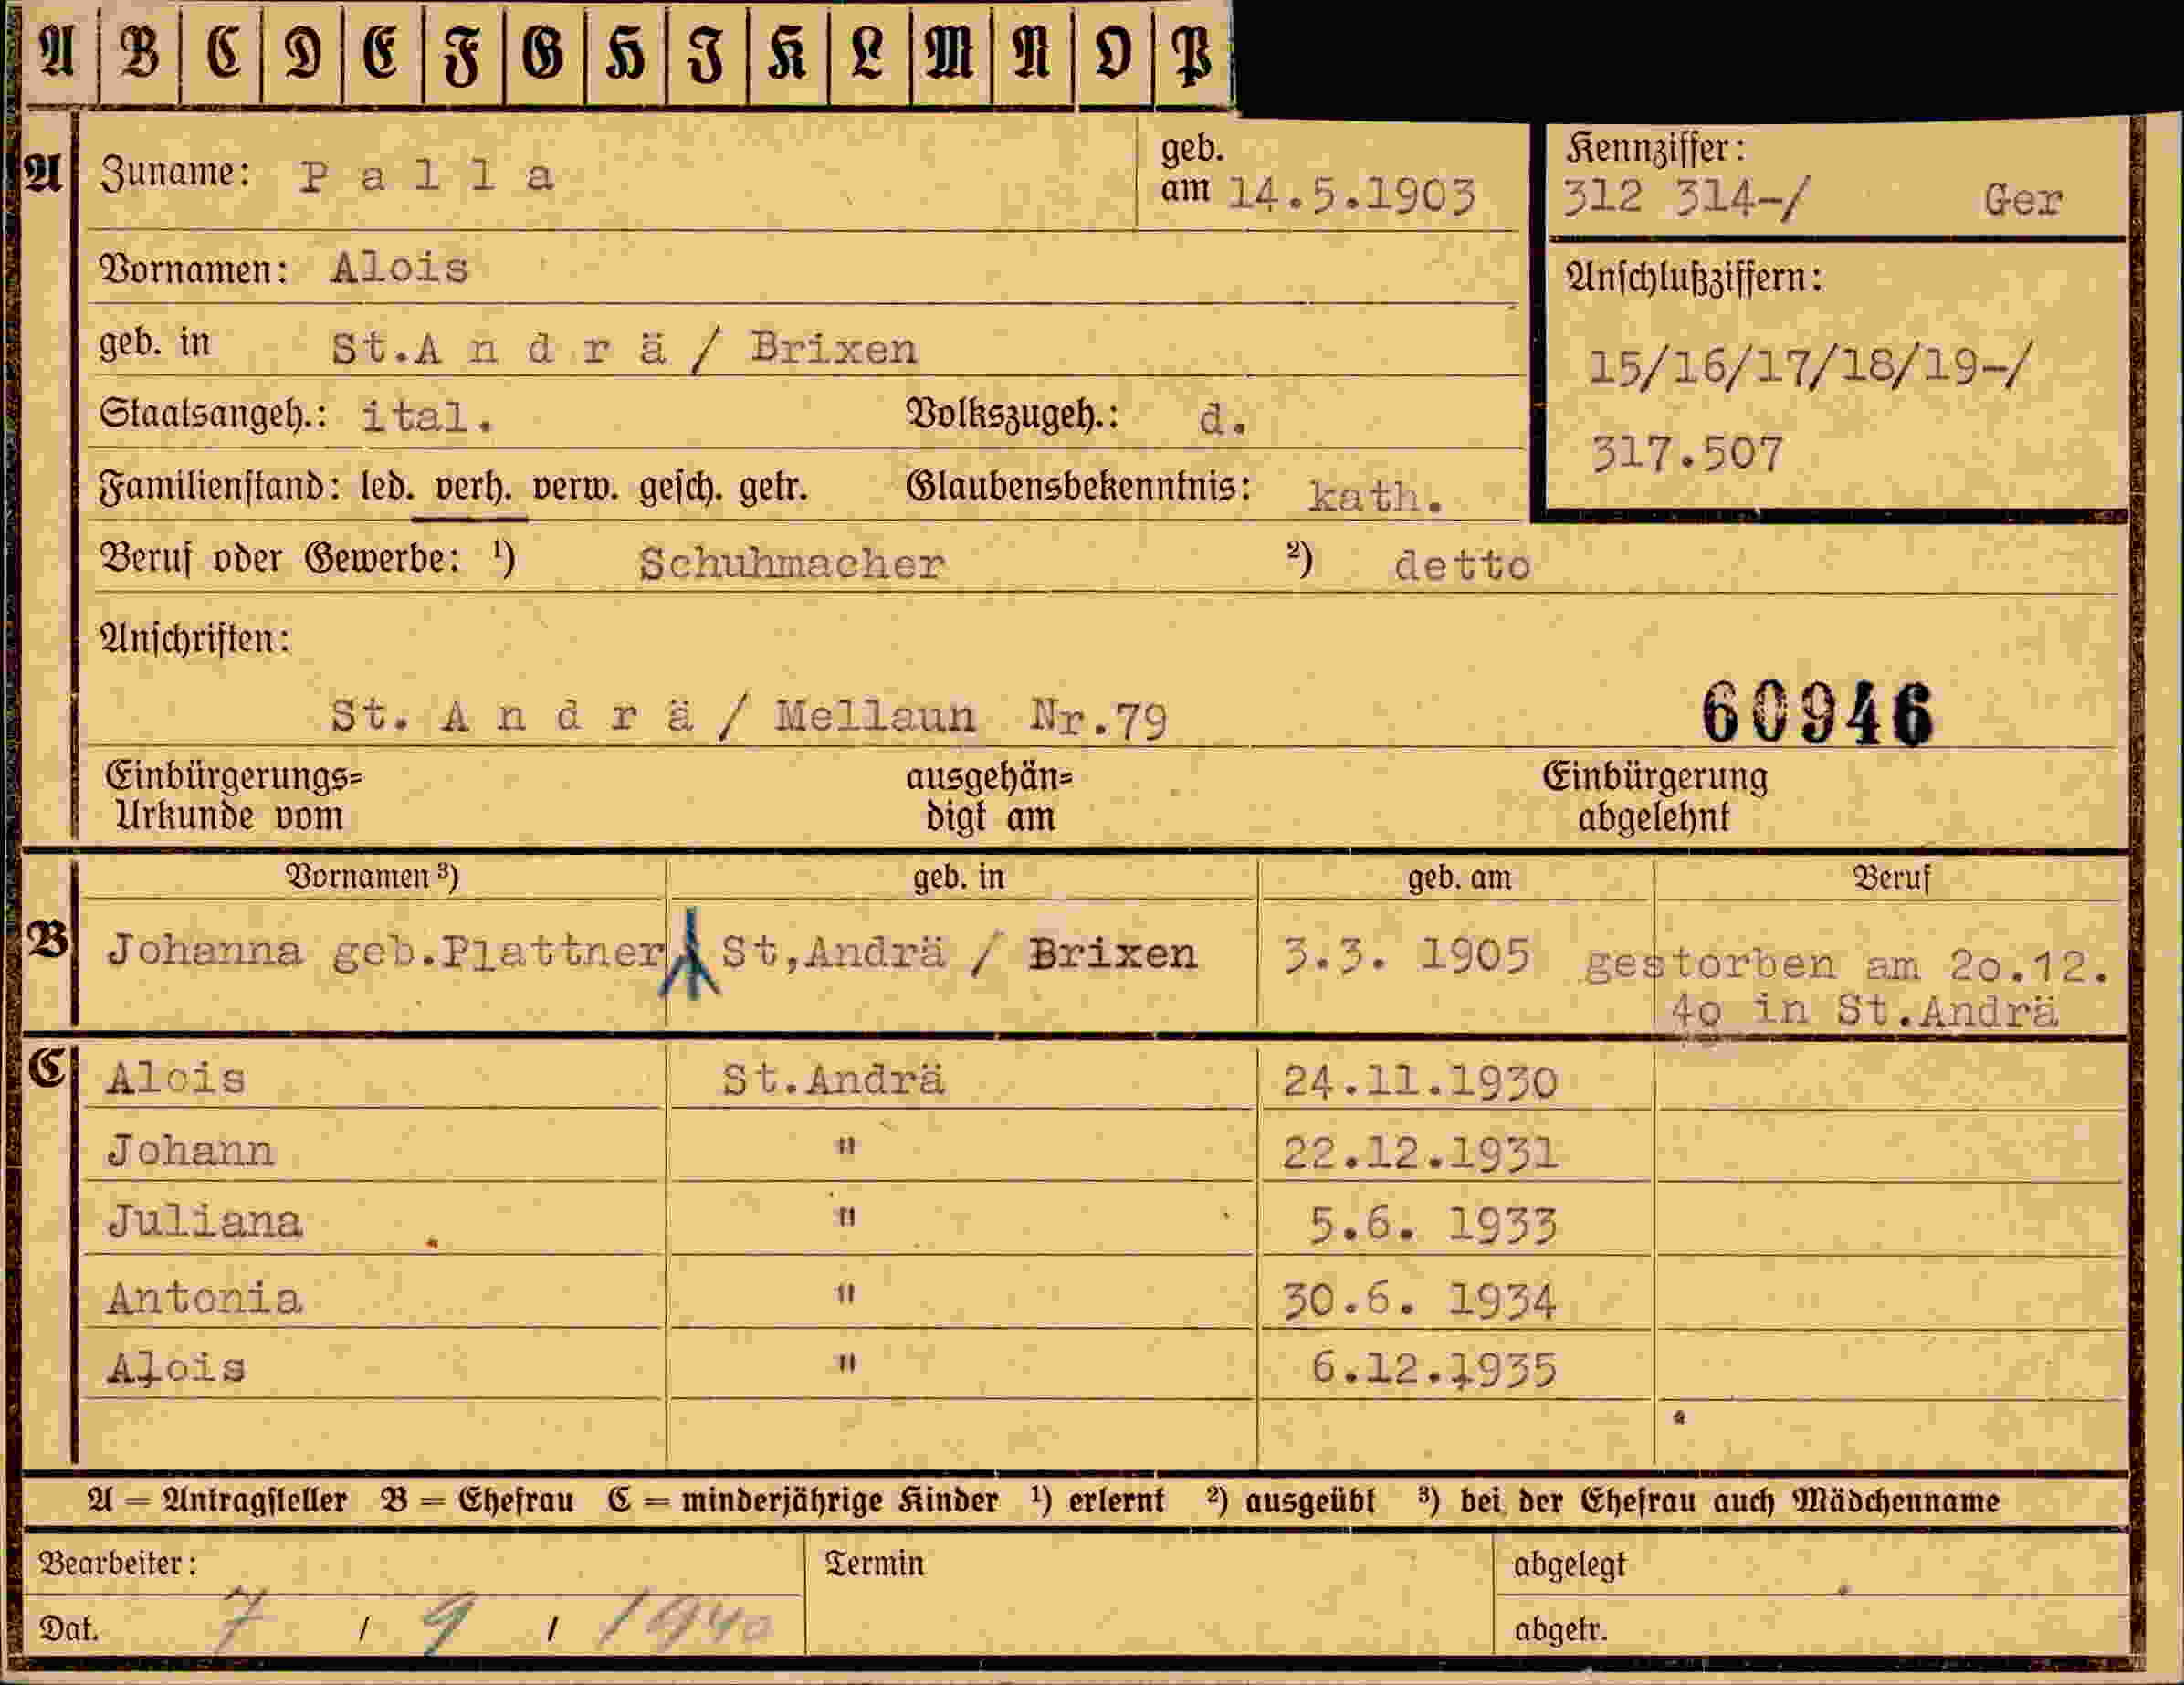 A B C D E F G H I K L M N O P
A Zuname: Palla geb. am 14.5.1903 Kennziffer: 312 314-/ Ger
Vornamen: Alois
Anschlußziffern:
geb. in St.Andrä / Brixen
15/16/17/18/19-/
Staatsangeh.: ital. Volkszugeh.: d.
317.507
Familienstand: led. verh. verw. gesch. getr. Glaubensbekenntnis: kath.
Beruf oder Gewerbe: ¹) Schuhmacher ²) detto
Anschriften:
St. Andrä / Mellaun Nr.79 60946
Einbürgerungs= ausgehän= Einbürgerung
Urkunde vom digt am abgelehnt
Vornamen ³) geb. in geb. am Beruf
B Johanna geb.Plattner St,Andrä / Brixen 3.3. 1905 gestorben am 2o.12.
4o in St.Andrä
C Alois St.Andrä 24.11.1930
Johann " 22.12.1931
Juliana " 5.6. 1933
Antonia " 30.6. 1934
Alois " 6.12.1935
A = Antragsteller B = Ehefrau C = minderjährige Kinder ¹) erlernt ²) ausgeübt ³) bei der Ehefrau auch Mädchenname
Bearbeiter: Termin abgelegt
Dat. 7 / 9 / 1940 abgetr.